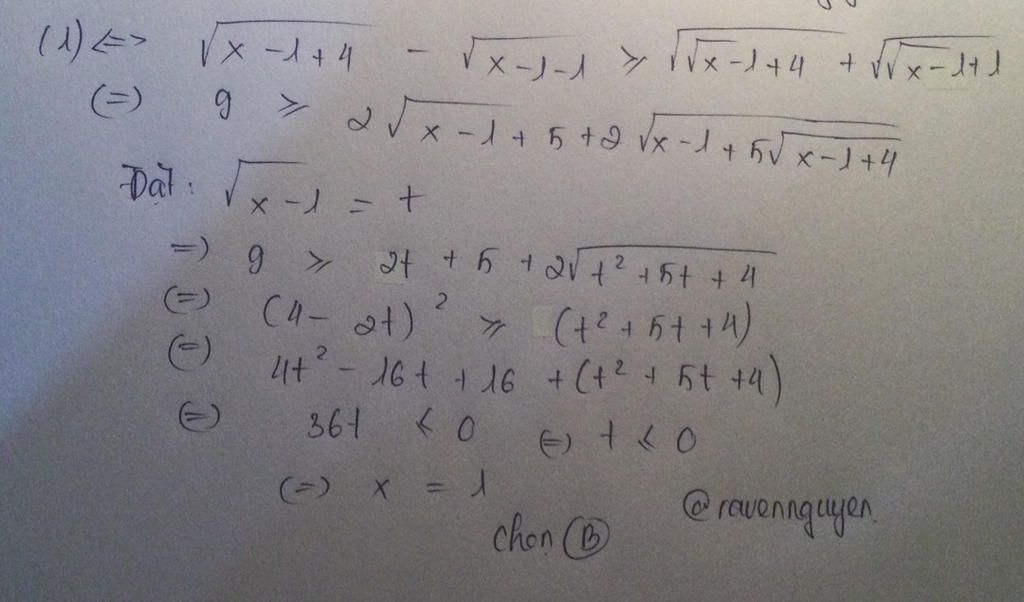 (1) <=> √(x-1+4) - √(x-1-1) ≥ √(√x-1+4) + √(√x-1+1)
(=) 9 ≥ 2√(x-1+5+2√(x-1+5√(x-1+4)))
Đặt: √(x-1) = t
=) 9 ≥ 2t + 5 + 2√(t² + 5t + 4)
(=) (4 - 2t)² ≥ (t² + 5t + 4)
(=) 4t² - 16t + 16 + (t² + 5t + 4)
(=) 36t ≤ 0 (=) t ≤ 0
(=) x = 1
Chọn Ⓑ
@ravennguyen